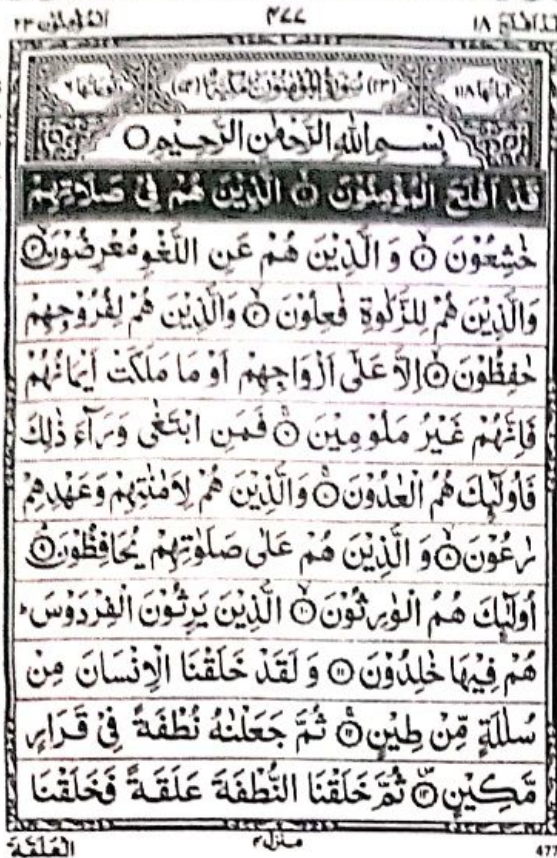 قد افلح ١٨ ٤٧٧ المؤمنون ٢٣
اٰياتها ١١٨ (٢٣) سُوْرَةُ الْمُؤْمِنُوْنَ مَكِّيَّةٌ (٧٤) ركوعاتها ٦
بِسْمِ اللهِ الرَّحْمٰنِ الرَّحِيْمِ ○
قَدْ اَفْلَحَ الْمُؤْمِنُوْنَ ۝١ الَّذِيْنَ هُمْ فِيْ صَلَاتِهِمْ
خٰشِعُوْنَ ۝٢ وَ الَّذِيْنَ هُمْ عَنِ اللَّغْوِ مُعْرِضُوْنَ ۝٣
وَالَّذِيْنَ هُمْ لِلزَّكٰوةِ فٰعِلُوْنَ ۝٤ وَالَّذِيْنَ هُمْ لِفُرُوْجِهِمْ
حٰفِظُوْنَ ۝٥ اِلَّا عَلٰٓى اَزْوَاجِهِمْ اَوْ مَا مَلَكَتْ اَيْمَانُهُمْ
فَاِنَّهُمْ غَيْرُ مَلُوْمِيْنَ ۝٦ فَمَنِ ابْتَغٰى وَرَآءَ ذٰلِكَ
فَاُولٰٓئِكَ هُمُ الْعٰدُوْنَ ۝٧ وَالَّذِيْنَ هُمْ لِاَمٰنٰتِهِمْ وَعَهْدِهِمْ
رٰعُوْنَ ۝٨ وَ الَّذِيْنَ هُمْ عَلٰى صَلَوٰتِهِمْ يُحَافِظُوْنَ ۝٩
اُولٰٓئِكَ هُمُ الْوٰرِثُوْنَ ۝١٠ الَّذِيْنَ يَرِثُوْنَ الْفِرْدَوْسَ ؕ
هُمْ فِيْهَا خٰلِدُوْنَ ۝١١ وَ لَقَدْ خَلَقْنَا الْاِنْسَانَ مِنْ
سُلٰلَةٍ مِّنْ طِيْنٍ ۝١٢ ثُمَّ جَعَلْنٰهُ نُطْفَةً فِيْ قَرَارٍ
مَّكِيْنٍ ۝١٣ ثُمَّ خَلَقْنَا النُّطْفَةَ عَلَقَةً فَخَلَقْنَا
منزل ٤ الْعَلَقَةَ
477